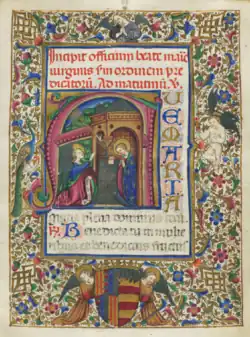 Incipit officium beate marie
virginis s'm ordinem pre
dicatorū. Ad matutinū. V.
UEMARIA
gracia plena dominus
R. Benedicta tu in mulie
ribus et benedictus fructus